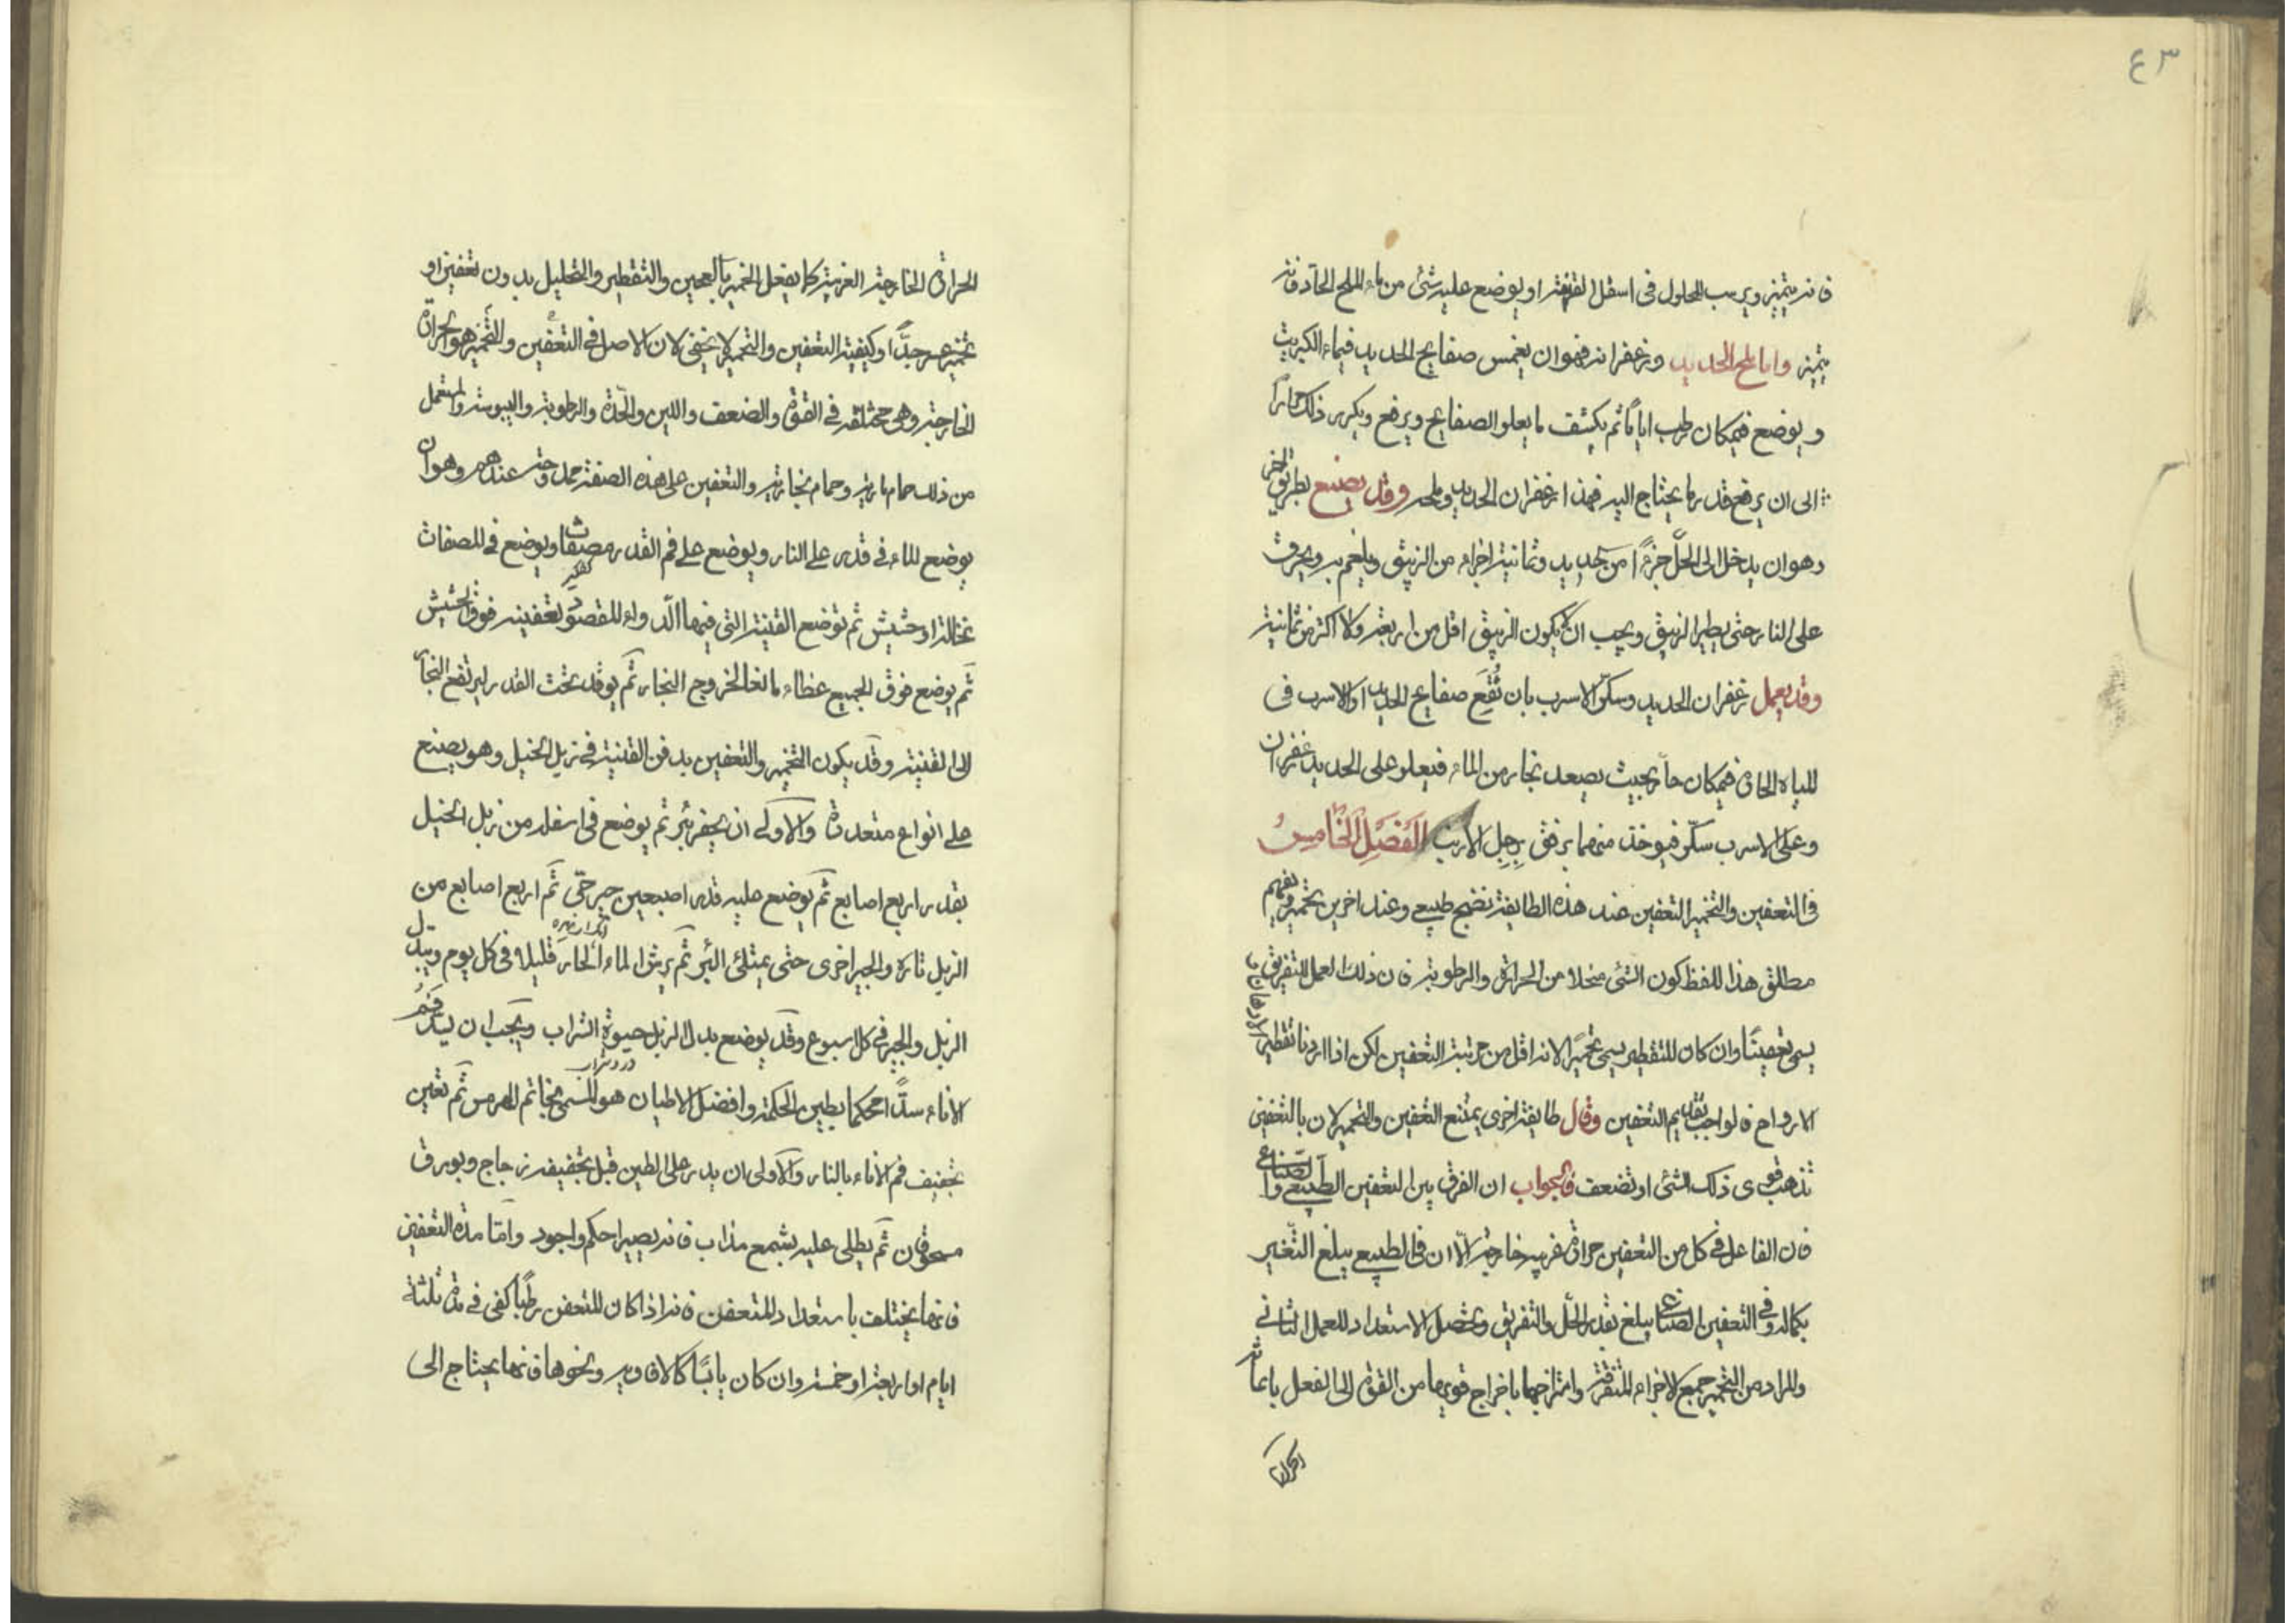 ٤٣
فانه يتميز ويرسب المحلول في اسفل القنينة او يوضع عليه شئ من ماء الملح الحاد فانه
يتميز واما ملح الحديد وزعفرانه فهو ان يغمس صفايح الحديد في ماء الكبريت
ويوضع في مكان رطب اياما ثم يكشف ما يعلو الصفايح ويرفع ويكرر ذلك مرارا
الى ان يرفع قدر ما يحتاج اليه فهذا زعفران الحديد وملحه وقد يصنع بطريق اخر
وهو ان يدخل الى الحل جزءا من حديد وثمانية اجزاء من الزيبق ويلغم به ويحرق
على النار حتى يطير الزيبق ويجب ان لا يكون الزيبق اقل من اربعة ولا اكثر من ثمانية
وقد يعمل زعفران الحديد وسكر الاسرب بان تقع صفايح الحديد او الاسرب في
المياه الحادة في مكان حار بحيث يصعد بخار من الماء فيعلو على الحديد زعفران
وعلى الاسرب سكر فيوخذ منهما برفق برجل الارنب الفصل الخامس
في التعفين والتخمير التعفين عند هذه الطايفة نضج طبيعي وعند اخرين تخمير ويفهم
مطلق هذا اللفظ كون الشئ منحلا من الحرارة والرطوبة فان ذلك العمل للتفريق
يسمى تعفينا وان كان للتقطير يسمى تخميرا لانه اقل من مرتبة التعفين لكن اذا اردنا تقطير
الارواح فالواجب تقديم التعفين وقال طايفة اخرى يمتنع التعفين والتخمير لان بالتعفين
تذهب قوى ذلك الشئ او تضعف فالجواب ان الفرق بين التعفين الطبيعي والصناعي
فان الفاعل في كل من التعفين حرارة غريبة خارجية الا ان في الطبيعي يبلغ التغير
بكماله وفي التعفين الصناعي يبلغ بقدر الحل والتفريق وتحصل الاستعداد للعمل الثاني
والمراد من التخمير جمع الاجزاء المتفرقة وامتزاجها باخراج قويها من القوة الى الفعل باعانة
الحرارة
الحرارة الخارجية الغريبة كما يفعل الخمير بالعجين والتقطير والتحليل بدون تعفين او
تخمير عسر جدا وكيفية التعفين والتخمير لا يخفى لان الاصل في التعفين والتخمير هو الحرارة
الخارجية وهي مختلفة في القوة والضعف واللين والحدة والرطوبة واليبوسة والمستعمل
من ذلك حمام مارية وحمام بخارية والتعفين على هذه الصفة ممدوحة عندهم وهو ان
يوضع الماء في قدر على النار ويوضع على فم القدر مصفاة ويوضع في المصفاة
نخالة او حشيش ثم توضع القنينة التي فيها الدواء المقصود تعفينه فوق الحشيش
ثم يوضع فوق الجميع غطاء مانعا لخروج البخار ثم يوقد تحت القدر ليرتفع البخار
الى القنينة وقد يكون التخمير والتعفين بدفن القنينة في زبل الخيل وهو يصنع
على انواع متعددة والاولى ان يحفر بئر ثم يوضع في اسفله من زبل الخيل
بقدر اربع اصابع ثم يوضع عليه قدر اصبعين جير حي ثم اربع اصابع من
الزبل تارة والجير اخرى حتى يمتلئ البئر ثم يرش الماء الحار قليلا في كل يوم ويبدل
الزبل والجير في كل اسبوع وقد يوضع بدل الزبل حيوة الشراب ويجب ان يسد فم
الاناء سدا محكما بطين الحكمة وافضل الاطيان هو المسمى بخاتم الهرمس ثم تعين
تجفيف فم الاناء بالنار والاولى ان يدر على الطين قبل تجفيفه زجاج وبورق
مسحوقان ثم يطلى عليه بشمع مذاب فانه يصير احكم واجود واما مدة التعفين
فانها يختلف باستعداد المتعفن فانه اذا كان المتعفن رطبا كفى في مدة ثلثة
ايام او اربعة او خمسة وان كان يابسا كالافاويه ونحوها فانها يحتاج الى